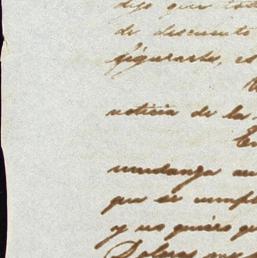 digo que
de descuento
figurarte, es
noticia de la
En
mudanza
que se cumpl
y no quiero q
Dolores